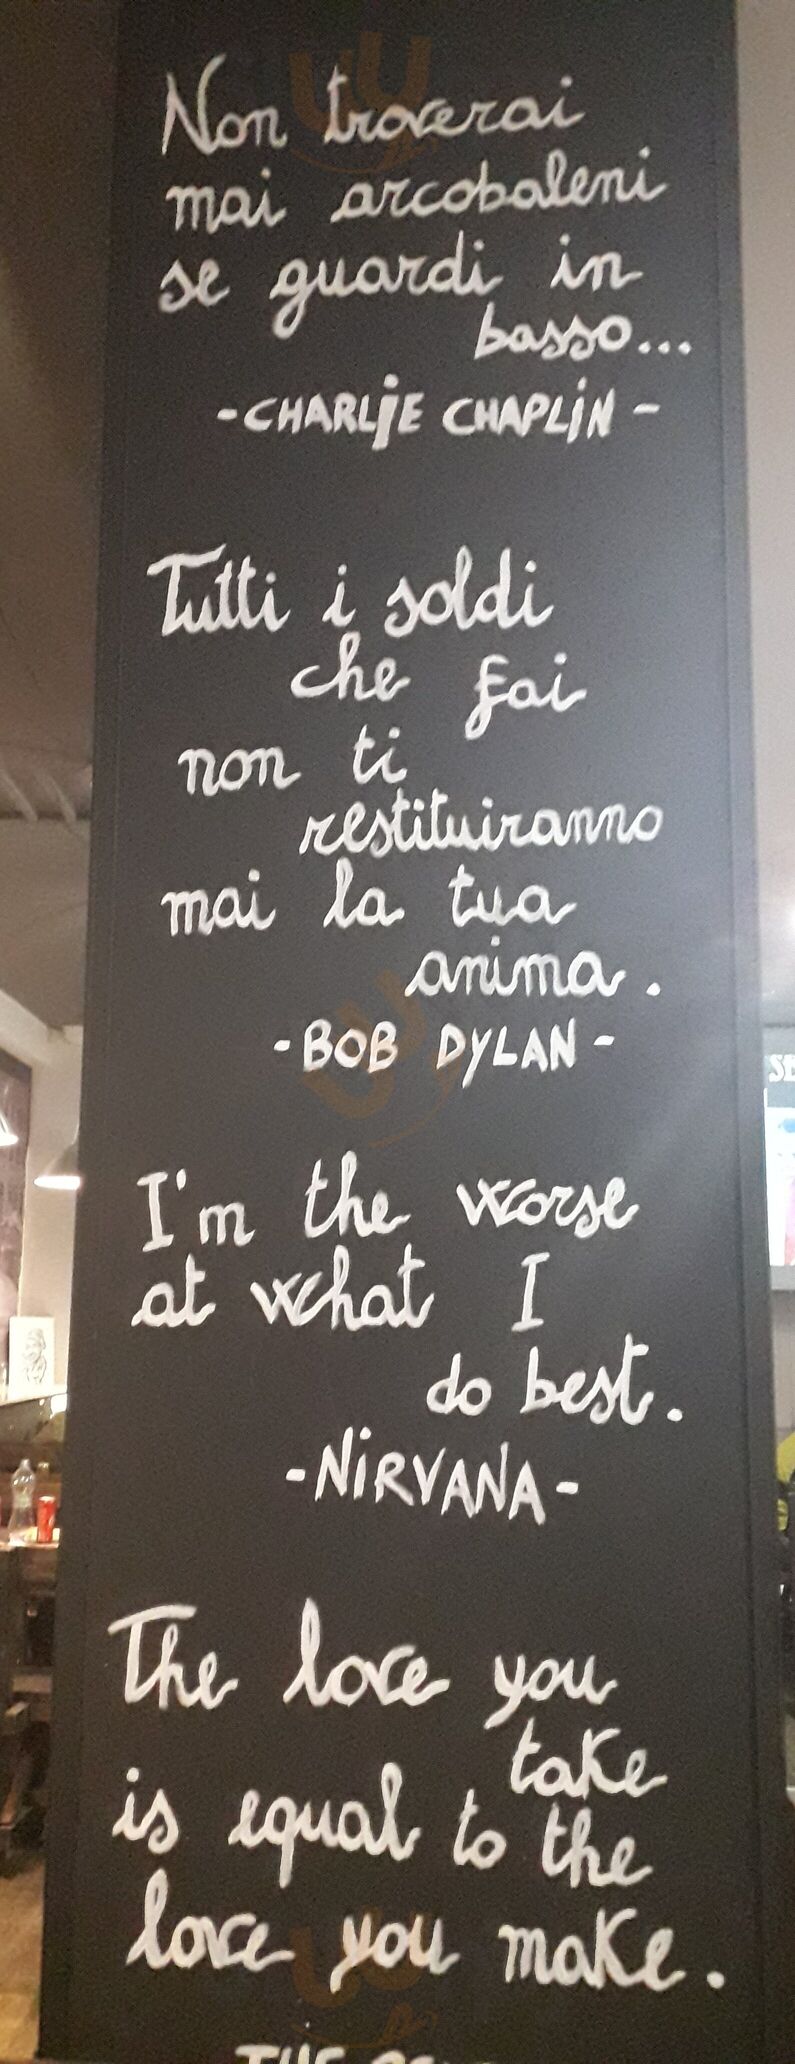 Non troverai
mai arcobaleni
se guardi in
basso...
-CHARLIE CHAPLIN-
Tutti i soldi
che fai
non ti
restituiranno
mai la tua
anima.
-BOB DYLAN-
I'm the worse
at what I
do best.
-NIRVANA-
The love you
take
is equal to the
love you make.
THE